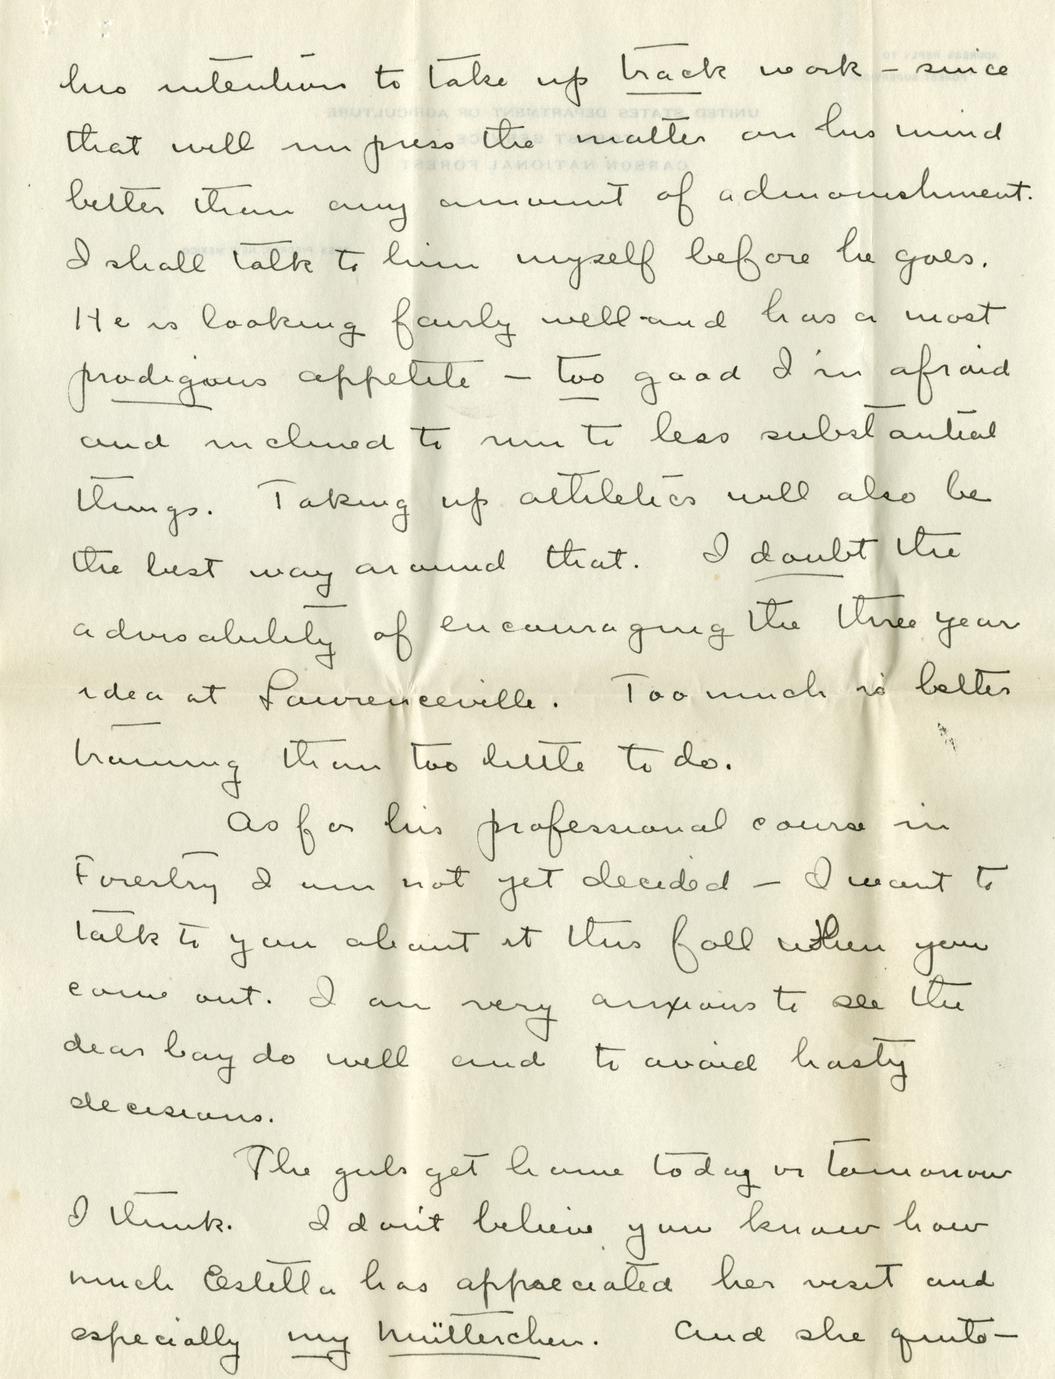 his intention to take up track work – since
that will impress the matter on his mind
better than any amount of admonishment.
I shall talk to him myself before he goes.
He is looking fairly well and has a most
prodigous appetite – too good I'm afraid
and inclined to run to less substantial
things. Taking up athletics will also be
the best way around that. I doubt the
advisability of encouraging the three year
idea at Lawrenceville. Too much is better
training than too little to do.
As for his professional course in
Forestry I am not yet decided – I want to
talk to you about it this fall when you
come out. I am very anxious to see the
dear boy do well and to avoid hasty
decisions.
The girls get home today or tomorrow
I think. I don't believe you know how
much Estella has appreciated her visit and
especially my Mütterchen. And she quite–
UNITED STATES DEPARTMENT OF AGRICULTURE
FOREST SERVICE
CARSON NATIONAL FOREST